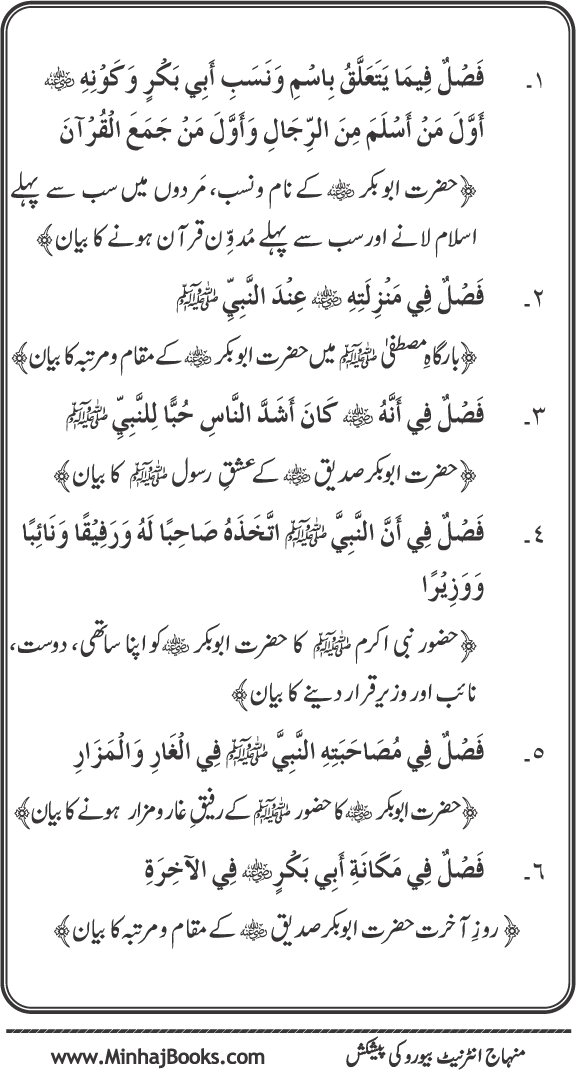 ١۔ فَصْلٌ فِيمَا يَتَعَلَّقُ بِاسْمِ وَنَسَبِ أَبِي بَكْرٍ وَكَوْنِهِ رضی اللہ عنہ
أَوَّلَ مَنْ أَسْلَمَ مِنَ الرِّجَالِ وَأَوَّلَ مَنْ جَمَعَ الْقُرْآنَ
﴿حضرت ابوبکر رضی اللہ عنہ کے نام ونسب، مَردوں میں سب سے پہلے
اسلام لانے اور سب سے پہلے مُدوِّنِ قرآن ہونے کا بیان﴾
٢۔ فَصْلٌ فِي مَنْزِلَتِهِ رضی اللہ عنہ عِنْدَ النَّبِيِّ ﷺ
﴿بارگاہِ مصطفیٰ ﷺ میں حضرت ابوبکر رضی اللہ عنہ کے مقام و مرتبہ کا بیان﴾
٣۔ فَصْلٌ فِي أَنَّهُ رضی اللہ عنہ كَانَ أَشَدَّ النَّاسِ حُبًّا لِلنَّبِيِّ ﷺ
﴿حضرت ابوبکر صدیق رضی اللہ عنہ کے عشقِ رسول ﷺ کا بیان﴾
٤۔ فَصْلٌ فِي أَنَّ النَّبِيَّ ﷺ اتَّخَذَهُ صَاحِبًا لَهُ وَرَفِيْقًا وَنَائِبًا
وَوَزِيْرًا
﴿حضور نبی اکرم ﷺ کا حضرت ابوبکر رضی اللہ عنہ کو اپنا ساتھی، دوست،
نائب اور وزیر قرار دینے کا بیان﴾
٥۔ فَصْلٌ فِي مُصَاحَبَتِهِ النَّبِيَّ ﷺ فِي الْغَارِ وَالْمَزَارِ
﴿حضرت ابوبکر رضی اللہ عنہ کا حضور ﷺ کے رفیقِ غار و مزار ہونے کا بیان﴾
٦۔ فَصْلٌ فِي مَكَانَةِ أَبِي بَكْرٍ رضی اللہ عنہ فِي الآخِرَةِ
﴿روزِ آخرت حضرت ابوبکر صدیق رضی اللہ عنہ کے مقام و مرتبہ کا بیان﴾
منہاج انٹرنیٹ بیورو کی پیشکش www.MinhajBooks.com